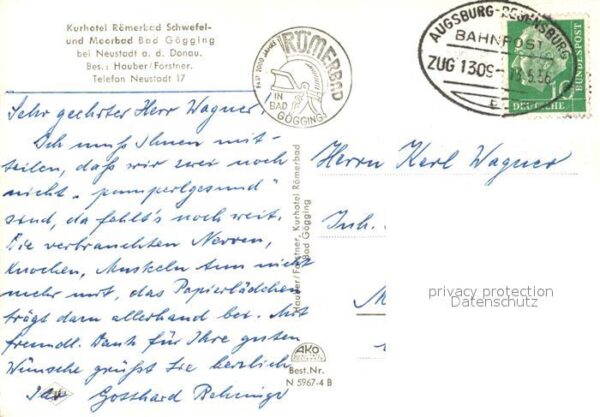 Kurhotel Römerbad Schwefel-
und Moorbad Bad Gögging
bei Neustadt a. d. Donau.
Bes.: Hauber/Forstner.
Telefon Neustadt 17
FAST 2000 JAHRE
RÖMERBAD
IN
BAD
GÖGGING
AUGSBURG-REGENSBURG
BAHNPOST
ZUG 1309
10
DEUTSCHE
BUNDESPOST
Sehr geehrter Herr Wagner!
Ich muß Ihnen mit-
teilen, daß wir zwei noch
nicht "pumperlgesund"
sind, da fehlt's noch weit.
Die verbrauchten Nerven,
Knochen, Muskeln tun nicht
mehr mit, das Papierlädchen
trägt dazu allerhand bei. Mit
freundl. Dank für Ihre guten
Wünsche grüßt Sie herzlich
Ihr Gotthard
Hauber/Forstner, Kurhotel Römerbad
Bad Gögging
AKO
Best.Nr.
N 5967-4 B
Herrn Karl Wagner
Inh.
privacy protection
Datenschutz